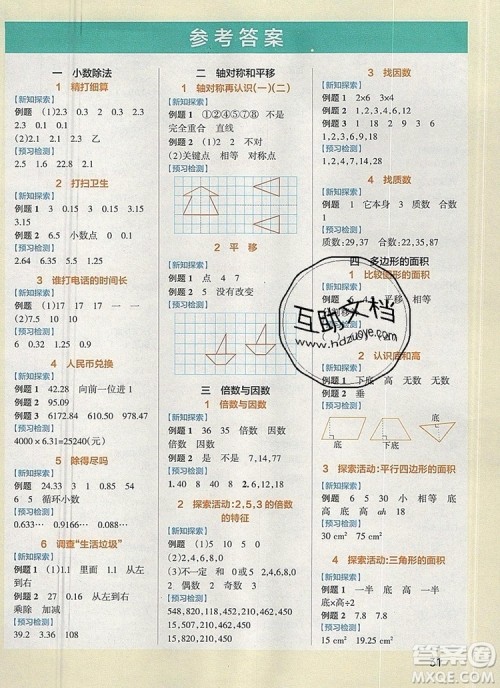 参考答案
一 小数除法
1 精打细算
【新知探索】
例题 1 (1)2.3 0 2 0.3 0
2.3 0.1 0.1
(2)2.1 2.3 乙
【预习检测】
2.5 1.6 22.8 2.1
2 打扫卫生
【新知探索】
例题 1 3 0.15 3 0.15 3
3.15
例题 2 6.5 小数点 0 0
【预习检测】
2.64 0.45 2.58
3 谁打电话的时间长
【新知探索】
例题 1 (1)17 17 = =
(2)7.5 10
【预习检测】
6 0.32 1.29 6.8
4 人民币兑换
【新知探索】
例题 1 42.28 向前一位进1
例题 2 95.09
例题 3 6172.84 610 987.67
【预习检测】
4000×6.31=25240(元)
5 除得尽吗
【新知探索】
例题 1 24.33 1 3 0.81
例题 2 5 8 循环小数
【预习检测】
0.633… 0.9166… 0.088…
6 调查“生活垃圾”
【新知探索】
例题 1 (1)1.1 里面 1.1 从
左到右
例题 2 21 0.47 从左到右
乘除 加减
【预习检测】
39.2 3.36 108
二 轴对称和平移
1 轴对称再认识(一)(二)
【新知探索】
例题 1 ①②④⑤⑦⑧ 不是
完全重合 直线
例题 2 (2)关键点 相等 对称点
【预习检测】
2 平 移
【新知探索】
例题 1 点 4 7
例题 2 5 没有改变
【预习检测】
三 倍数与因数
1 倍数与因数
【新知探索】
例题 1 36 35 倍数 因数
例题 2 7 0 7 倍数
【预习检测】
1.40 8 40 8 2.
2 探索活动:2,5,3的倍数
的特征
【新知探索】
例题 1 (1)5 10 5 0
(2)2,4,6,8,0
(3)不一定 和 0(或3)
例题 2 0,2,4,6,8 奇数 3
【预习检测】
548,820,152,410,450
15,810,820,410,450
15,820,450
15,820,450
3 找因数
【新知探索】
例题 1 2×6 3×4
例题 2 1,2,3,4,6,12
【预习检测】
1,2,3,6,9,18
1,2,4,7,14,28
4 找质数
【新知探索】
例题 1 1 它本身 2 质数 合数
1
【预习检测】
质数:29,37 合数:6,22
四 多边形的面积
1 比较图形的面积
【新知探索】
平移 相等
2 认识底和高
【新知探索】
例题 1 下底 高 无数 无数
例题 2 垂
【预习检测】
底 底 底
3 探索活动:平行四边形的面积
【新知探索】
例题 1 4 10 相等 底
高 底 高 ah
【预习检测】
30 cm² 75 cm²
4 探索活动:三角形的面积
【新知探索】
例题 1 一半 底 高 一半
底×高÷2
例题 2 7.8 7.8
【预习检测】
15 cm² 19.25 cm²
互助文档
www.hdzuoye.com
51